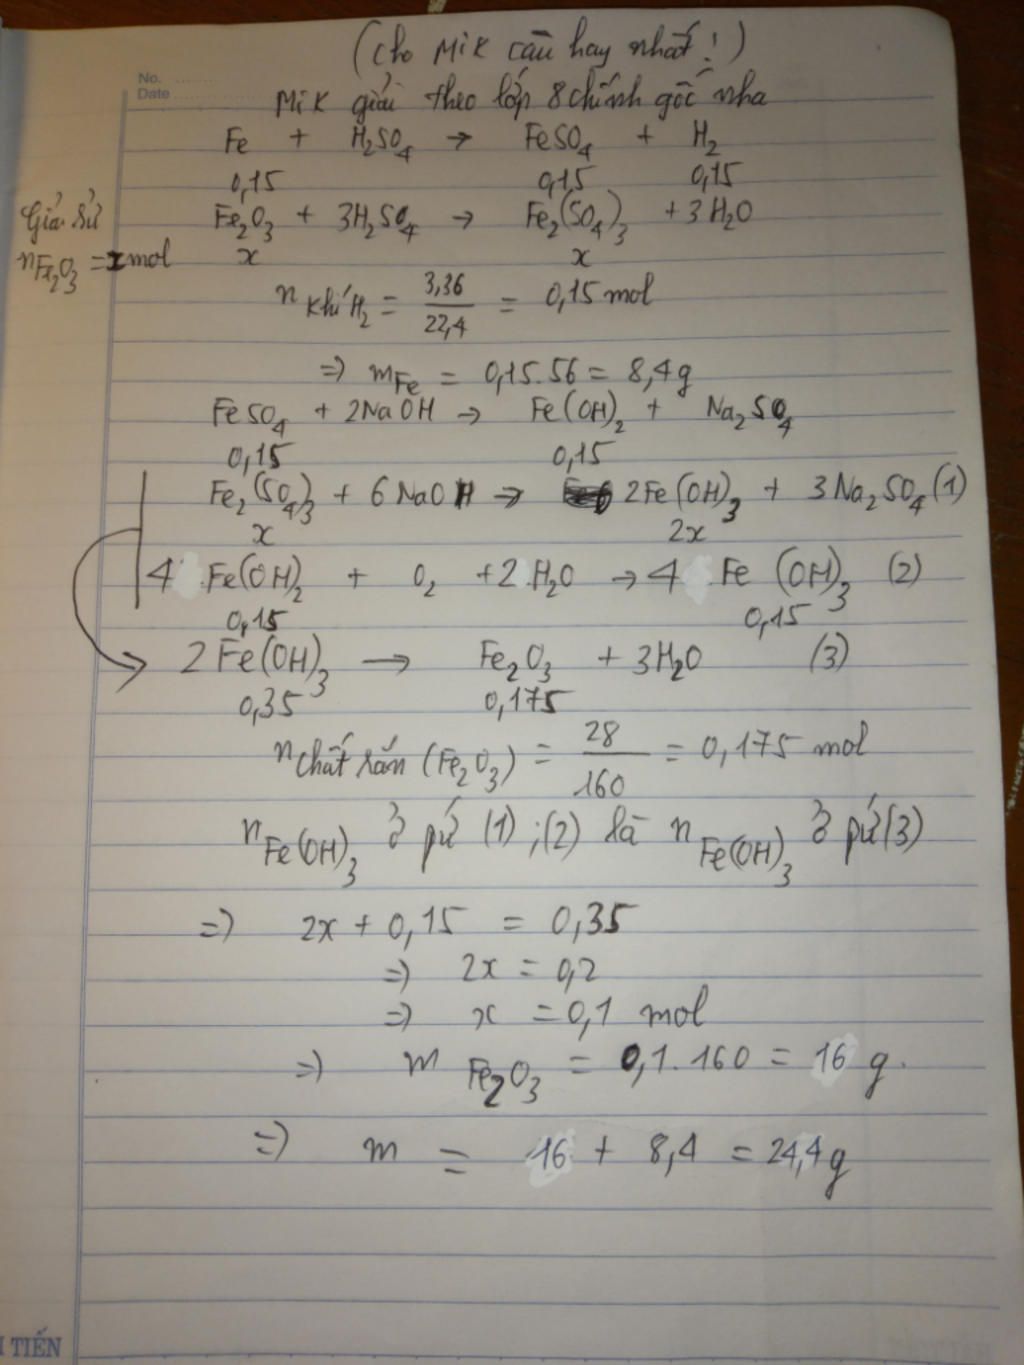 (Cho Mik câu hay nhất!)
No. ........
Date ................
Mik giải theo lớp 8 chính gốc nha
Fe + H₂SO₄ → FeSO₄ + H₂
0,15 0,15 0,15
Giả sử
nFe₂O₃ = x mol
Fe₂O₃ + 3H₂SO₄ → Fe₂(SO₄)₃ + 3H₂O
x x
n khí H₂ = 3,36/22,4 = 0,15 mol
=> mFe = 0,15.56 = 8,4g
FeSO₄ + 2NaOH → Fe(OH)₂ + Na₂SO₄
0,15 0,15
Fe₂(SO₄)₃ + 6NaOH → 2Fe(OH)₃ + 3Na₂SO₄ (1)
x 2x
4 Fe(OH)₂ + O₂ + 2H₂O → 4 Fe(OH)₃ (2)
0,15 0,15
2Fe(OH)₃ → Fe₂O₃ + 3H₂O (3)
0,35 0,175
n chất rắn (Fe₂O₃) = 28/160 = 0,175 mol
nFe(OH)₃ ở pứ (1);(2) là nFe(OH)₃ ở pứ (3)
=> 2x + 0,15 = 0,35
=> 2x = 0,2
=> x = 0,1 mol
=> m Fe₂O₃ = 0,1.160 = 16 g.
=> m = 16 + 8,4 = 24,4g
TIẾN